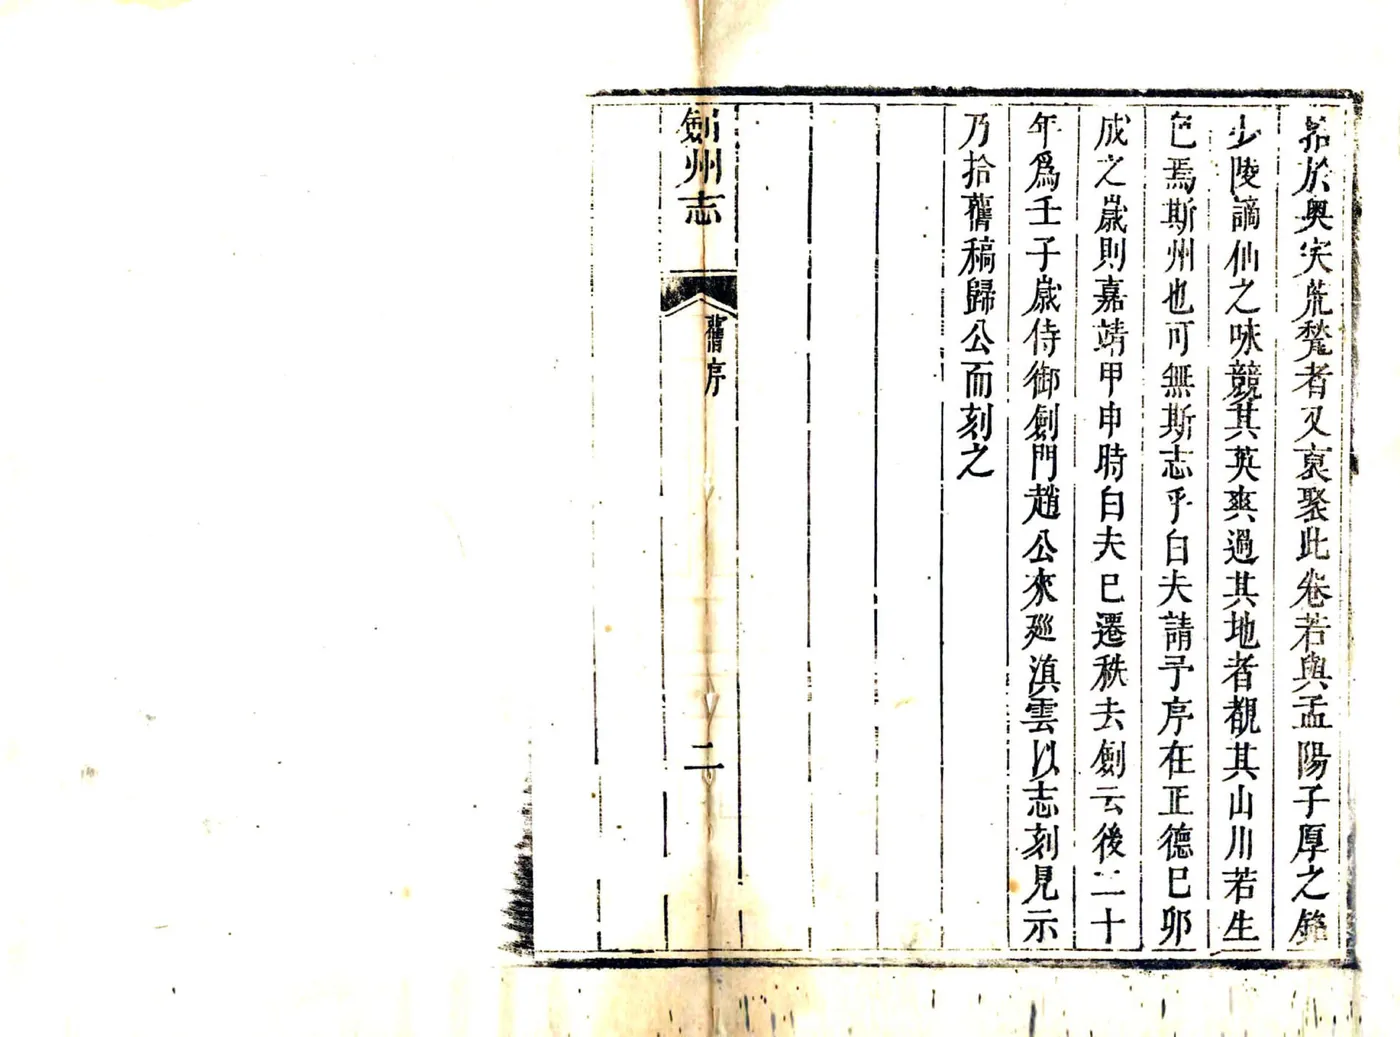 於奧突荒甃者又裒聚此卷若與孟陽子厚之鋒
少陵謫仙之咏競其英爽過其地者覩其山川若生
色焉斯州也可無斯志乎白夫請予序在正德巳卯
成之歲則嘉靖甲申時白夫巳遷秩去劍云後二十
年爲壬子歲侍御劍門趙公來廵滇雲以志刻見示
乃拾舊稿歸公而刻之
劍州志
舊序
二